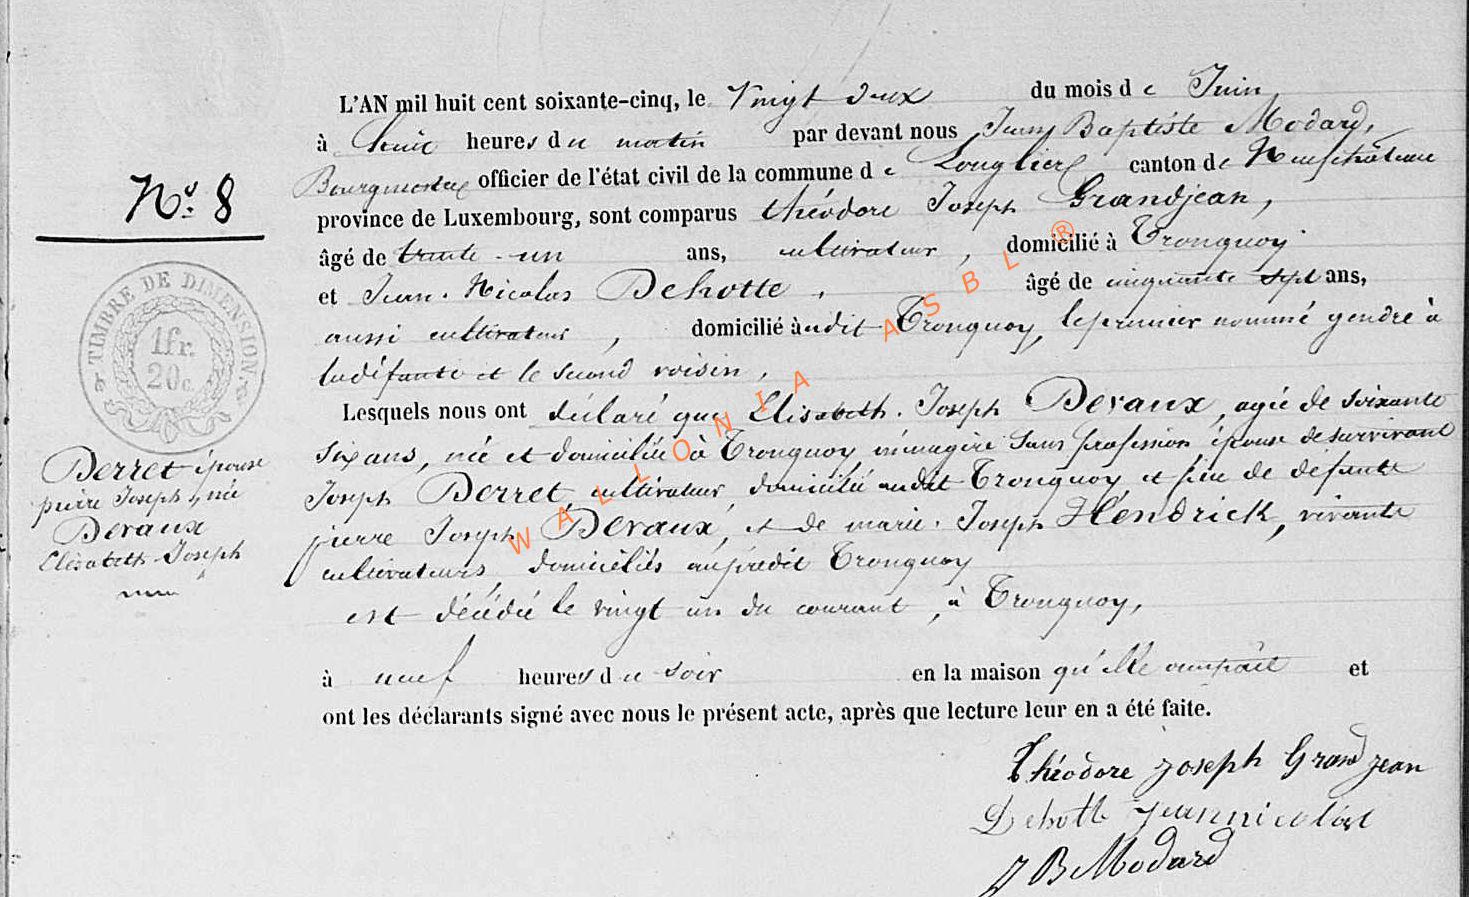 L'AN mil huit cent soixante-cinq, le Vingt deux du mois de Juin,
à huit heures du matin par devant nous Jean Baptiste Modard,
Bourgmestre officier de l'état civil de la commune de Longlier canton de Neufchâteau
province de Luxembourg, sont comparus théodore Joseph Grandjean,
âgé de trente-un ans, cultivateur, domicilié à Tronquoy
et Jean-Nicolas Dehotte, âgé de cinquante sept ans,
aussi cultivateur, domicilié audit Tronquoy, le premier nommé gendre à
la défunte et le second voisin,
Lesquels nous ont déclaré que Elisabeth-Joseph Devaux, agée de soixante
six ans, née et domiciliée à Tronquoy ménagère sans profession épouse de survivant
Joseph Derret, cultivateur domicilié audit Tronquoy et fille de défunts
pierre Joseph Devaux, et de marie-Joseph Hendrick, vivants
cultivateurs, domiciliés auprédit Tronquoy
est décédée le vingt un du courant, à Tronquoy,
à neuf heures du soir en la maison qu'elle occupait et
ont les déclarants signé avec nous le présent acte, après que lecture leur en a été faite.
Théodore joseph Grandjean
Dehotte jeannicolas
J B Modard
No. 8
TIMBRE DE DIMENSION
1 fr.
20 c.
Derret épouse
pierre Joseph, née
Devaux
Elisabeth-Joseph
WALLONIA ASBL ®